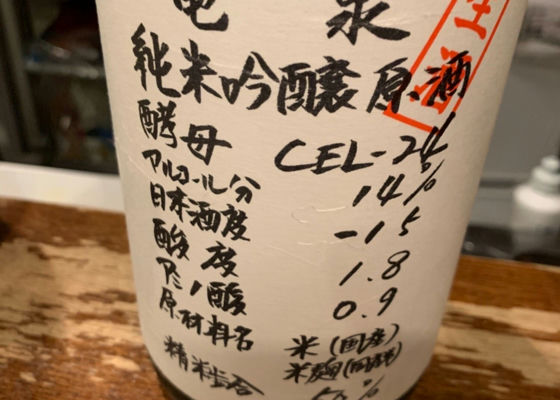 亀泉
純米吟醸原酒
酵母 CEL-24
アルコール分 14%
日本酒度 -15
酸度 1.8
アミノ酸 0.9
原材料名 米(国産)
米麹(国産米)
精米歩合